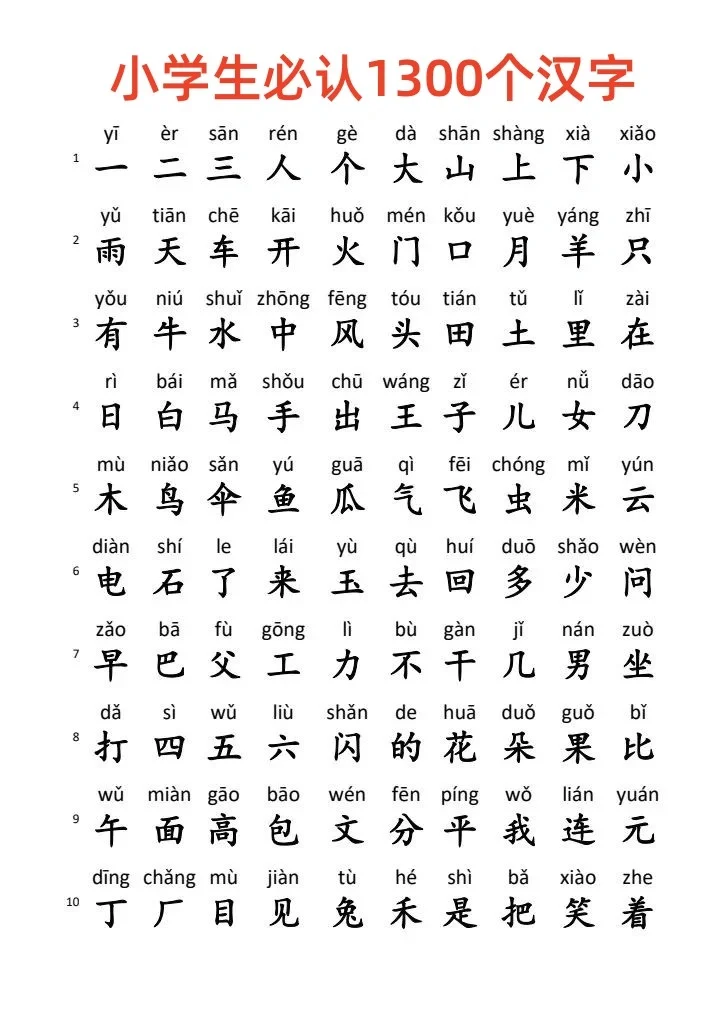 小学生必认1300个汉字
yī èr sān rén gè dà shān shàng xià xiǎo
1 一 二 三 人 个 大 山 上 下 小
yǔ tiān chē kāi huǒ mén kǒu yuè yáng zhī
2 雨 天 车 开 火 门 口 月 羊 只
yǒu niú shuǐ zhōng fēng tóu tián tǔ lǐ zài
3 有 牛 水 中 风 头 田 土 里 在
rì bái mǎ shǒu chū wáng zǐ ér nǚ dāo
4 日 白 马 手 出 王 子 儿 女 刀
mù niǎo sǎn yú guā qì fēi chóng mǐ yún
5 木 鸟 伞 鱼 瓜 气 飞 虫 米 云
diàn shí le lái yù qù huí duō shǎo wèn
6 电 石 了 来 玉 去 回 多 少 问
zǎo bā fù gōng lì bù gàn jǐ nán zuò
7 早 巴 父 工 力 不 干 几 男 坐
dǎ sì wǔ liù shǎn de huā duǒ guǒ bǐ
8 打 四 五 六 闪 的 花 朵 果 比
wǔ miàn gāo bāo wén fēn píng wǒ lián yuán
9 午 面 高 包 文 分 平 我 连 元
dīng chǎng mù jiàn tù hé shì bǎ xiào zhe
10 丁 厂 目 见 兔 禾 是 把 笑 着